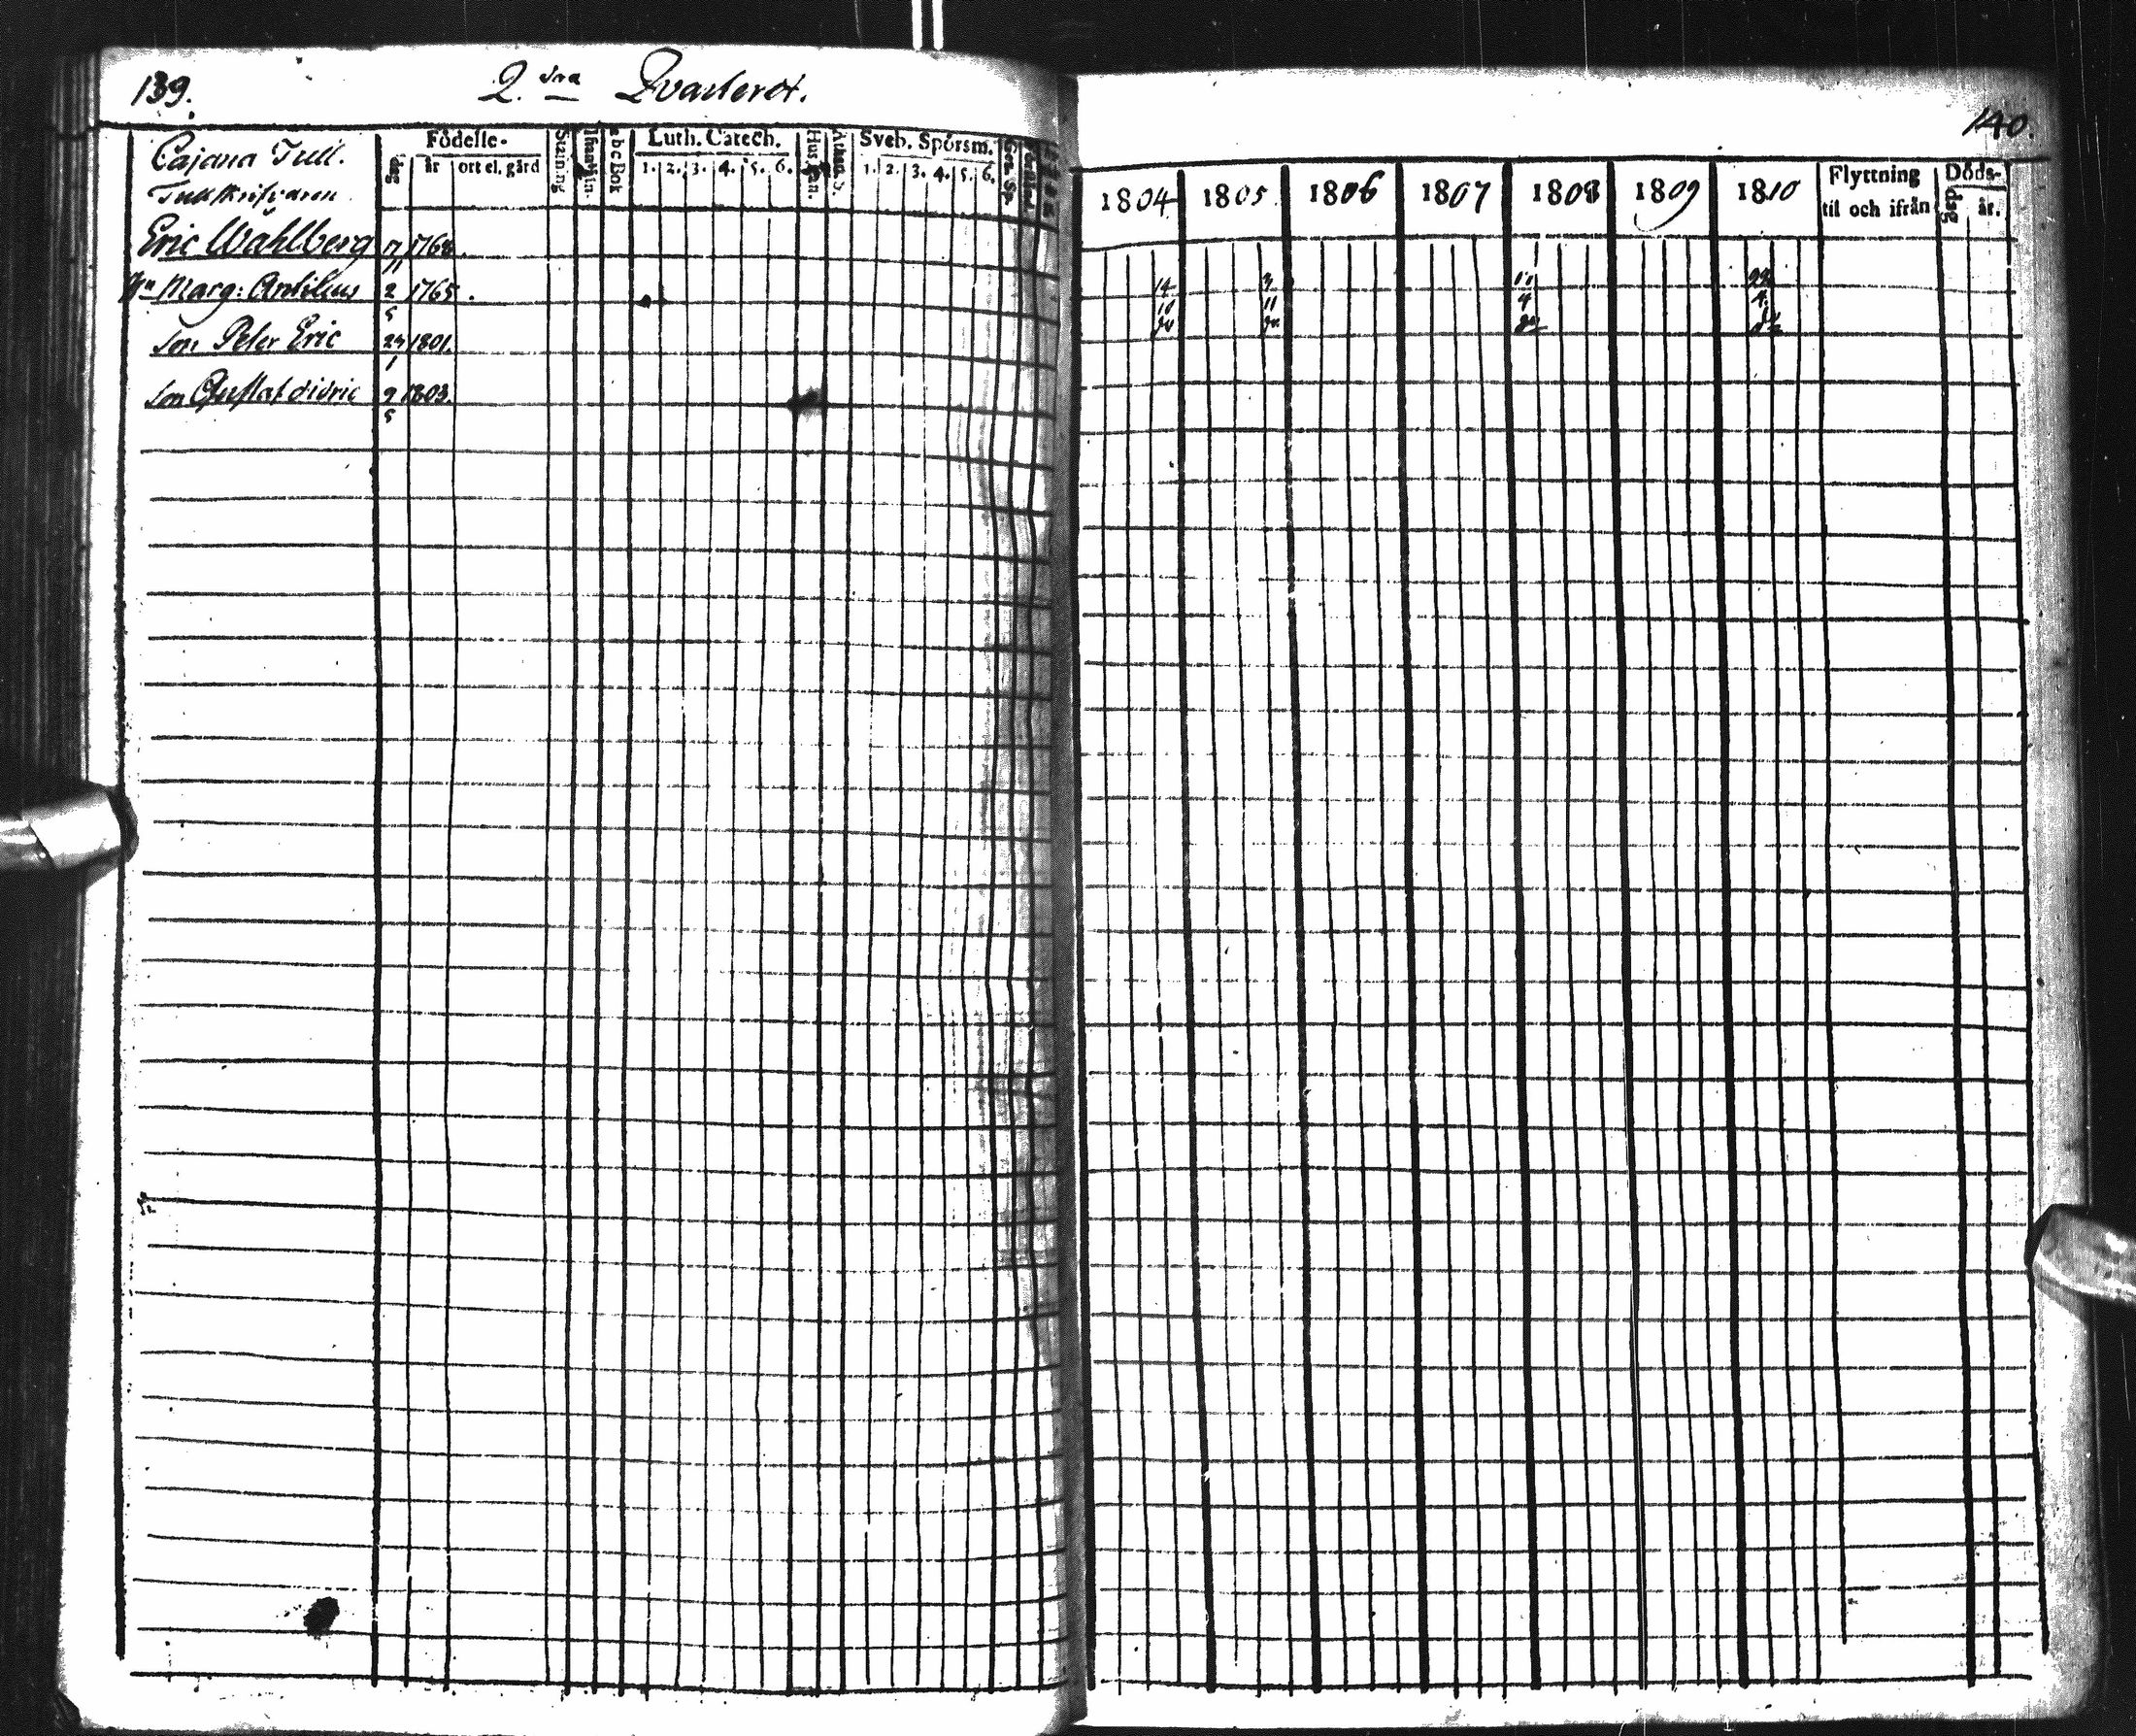 139.
2.dra Qvarteret.
Cajana Tull.
Tullskrifvaren
Födelse-
dag
år
ort el. gård
abc Bok
Luth. Catech.
1. 2. 3. 4. 5. 6.
Sveb. Spörsm.
1. 2. 3. 4. 5. 6.
Eric Wahlberg 17/11 1768.
Marg: Antilius 2/5 1765.
Son Peter Eric 24/1 1801.
Son Gustaf Didric 9/5 1803.
140.
1804 1805 1806 1807 1808 1809 1810
Flyttning
til och ifrån
Döds-
dag
år.
14 3 11 22
10 11 4 4